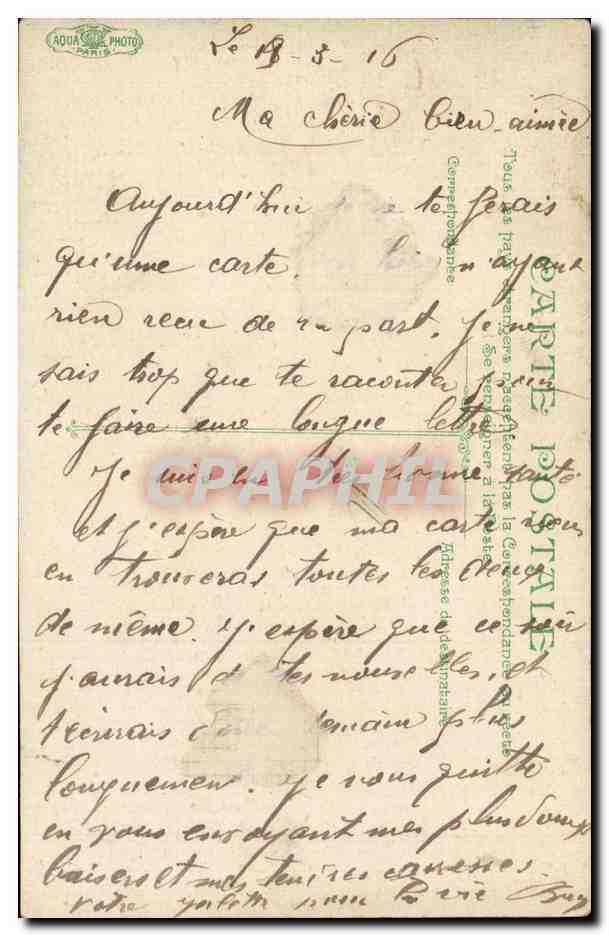 AQUA PHOTO
PARIS
Le 18-3-16
Ma chérie bien-aimée
Aujourd'hui je ne te ferais
qu'une carte. n'ayant
rien recu de ta part. Je ne
sais trop que te raconter pour
te faire une longue lettre
Je suis en très bonne santé
et j'espère que ma carte vous
en trouveras toutes les deux
de même. J'espère que ce soir
j'aurais de tes nouvelles, et
t'écrirais demain plus
longuement. Je vous quitte
en vous envoyant mes plus doux
baisers et mes tendres caresses.
Votre pour la vie
CARTE POSTALE
Tous les pays étrangers n'acceptent pas la Correspondance au recto
Se renseigner à la Poste
Correspondance
Adresse du destinataire
CPAPHIL